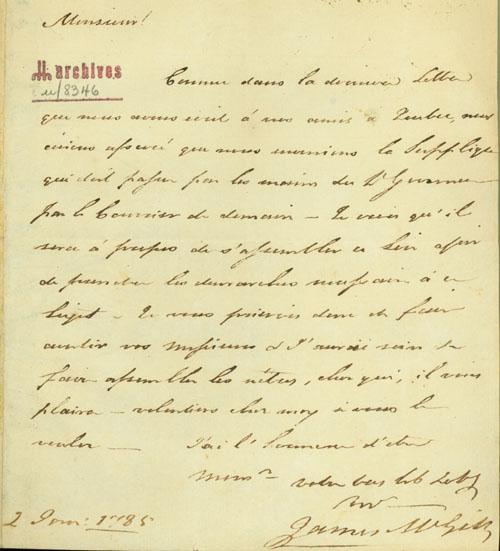 Monsieur!
archives
u/8346
Comme dans la dernière Lettre
que nous avons écrit à nos amis à Quebec, nous
avions assuré que nous enverrions la Supplique
qui doit passer par les mains du Lt Gouverneur
par le Courrier de demain – Je crois qu'il
sera à propos de s'assembler ce Soir afin
de prendre les demarches necessaires à ce
Sujet – Je vous prierois donc de faire
avertir vos Messieurs & J'aurai soin de
faire assembler les nôtres, chez qui, il vous
plaira – volontiers chez moy si vous le
voulez – J'ai l'honneur d'etre
Monsr votre très
James McGill
2 1785